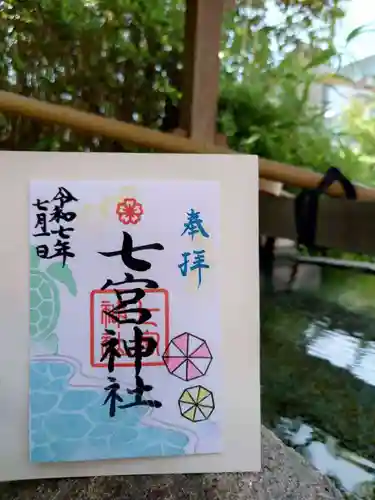 奉拝
七宮神社
令和七年
七月一日